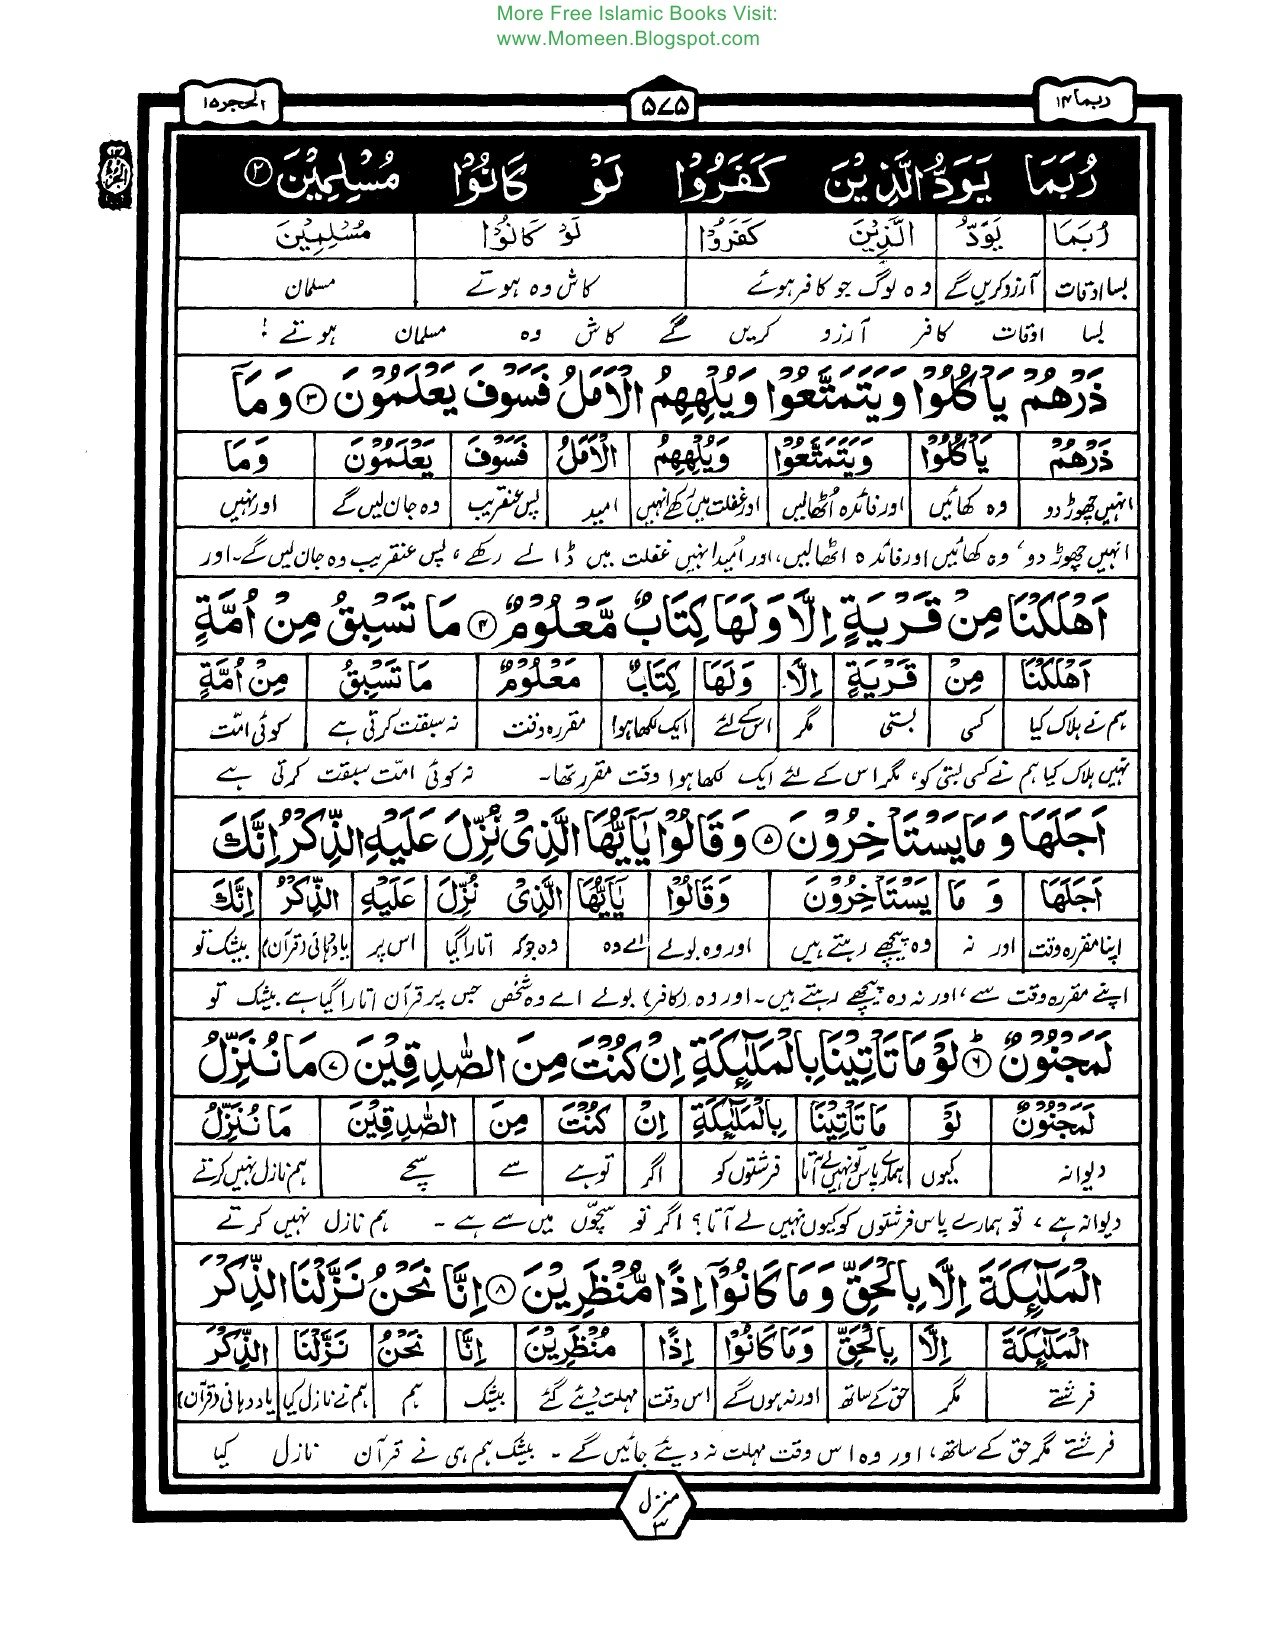 More Free Islamic Books Visit:
www.Momeen.Blogspot.com
ربما ۱۴
۵۷۵
الحجر ۱۵
رُبَمَا يَوَدُّ الَّذِيْنَ كَفَرُوْا لَوْ كَانُوْا مُسْلِمِيْنَ ②
رُبَمَا يَوَدُّ الَّذِيْنَ كَفَرُوْا لَوْ كَانُوْا مُسْلِمِيْنَ
بسا اوقات آرزو کریں گے وہ لوگ جو کافر ہوئے کاش وہ ہوتے مسلمان
بسا اوقات کافر آرزو کریں گے کاش وہ مسلمان ہوتے!
ذَرْهُمْ يَاْكُلُوْا وَيَتَمَتَّعُوْا وَيُلْهِهِمُ الْاَمَلُ فَسَوْفَ يَعْلَمُوْنَ ③ وَمَآ
ذَرْهُمْ يَاْكُلُوْا وَيَتَمَتَّعُوْا وَيُلْهِهِمُ الْاَمَلُ فَسَوْفَ يَعْلَمُوْنَ وَمَا
انہیں چھوڑ دو وہ کھائیں اور فائدہ اُٹھالیں اور غفلت میں رکھے انہیں امید پس عنقریب وہ جان لیں گے اور نہیں
انہیں چھوڑ دو، وہ کھائیں اور فائدہ اٹھالیں، اور اُمید انہیں غفلت میں ڈالے رکھے، پس عنقریب وہ جان لیں گے۔ اور
اَهْلَكْنَا مِنْ قَرْيَةٍ اِلَّا وَلَهَا كِتَابٌ مَّعْلُوْمٌ ④ مَا تَسْبِقُ مِنْ اُمَّةٍ
اَهْلَكْنَا مِنْ قَرْيَةٍ اِلَّا وَلَهَا كِتَابٌ مَعْلُوْمٌ مَا تَسْبِقُ مِنْ اُمَّةٍ
ہم نے ہلاک کیا کسی بستی مگر اس کے لئے ایک لکھا ہوا مقررہ وقت نہ سبقت کرتی ہے کوئی امّت
نہیں ہلاک کیا ہم نے کسی بستی کو، مگر اس کے لئے ایک لکھا ہوا وقت مقرر تھا۔ نہ کوئی امّت سبقت کرتی ہے
اَجَلَهَا وَمَا يَسْتَاْخِرُوْنَ ⑤ وَقَالُوْا يٰۤاَيُّهَا الَّذِىْ نُزِّلَ عَلَيْهِ الذِّكْرُ اِنَّكَ
اَجَلَهَا وَ مَا يَسْتَاْخِرُوْنَ وَقَالُوْا يٰۤاَيُّهَا الَّذِىْ نُزِّلَ عَلَيْهِ الذِّكْرُ اِنَّكَ
اپنا مقررہ وقت اور نہ وہ پیچھے رہتے ہیں اور وہ بولے اے وہ وہ جو کہ اتارا گیا اس پر یاد دہانی (قرآن) بیشک تو
اپنے مقررہ وقت سے، اور نہ وہ پیچھے رہتے ہیں۔ اور وہ (کافر) بولے اے وہ شخص جس پر قرآن اتارا گیا ہے بیشک تو
لَمَجْنُوْنٌ ⑥ لَوْ مَا تَاْتِيْنَا بِالْمَلٰٓئِكَةِ اِنْ كُنْتَ مِنَ الصّٰدِقِيْنَ ⑦ مَا نُنَزِّلُ
لَمَجْنُوْنٌ لَوْ مَا تَاْتِيْنَا بِالْمَلٰٓئِكَةِ اِنْ كُنْتَ مِنَ الصّٰدِقِيْنَ مَا نُنَزِّلُ
دیوانہ کیوں ہمارے پاس تو نہیں لے آتا فرشتوں کو اگر تو ہے سے سچے ہم نازل نہیں کرتے
دیوانہ ہے، تو ہمارے پاس فرشتوں کو کیوں نہیں لے آتا؟ اگر تو سچّوں میں سے ہے۔ ہم نازل نہیں کرتے
الْمَلٰٓئِكَةَ اِلَّا بِالْحَقِّ وَمَا كَانُوْٓا اِذًا مُّنْظَرِيْنَ ⑧ اِنَّا نَحْنُ نَزَّلْنَا الذِّكْرَ
الْمَلٰٓئِكَةَ اِلَّا بِالْحَقِّ وَمَا كَانُوْٓا اِذًا مُنْظَرِيْنَ اِنَّا نَحْنُ نَزَّلْنَا الذِّكْرَ
فرشتے مگر حق کے ساتھ اور نہ ہوں گے اس وقت مہلت دیئے گئے بیشک ہم ہم نے نازل کیا یاد دہانی (قرآن)
فرشتے مگر حق کے ساتھ، اور وہ اس وقت مہلت نہ دیئے جائیں گے۔ بیشک ہم ہی نے قرآن نازل کیا
منزل ۳